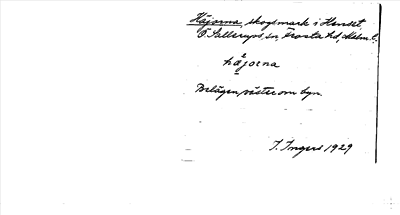 Håjorna, skogsmark i Henset.
Ö. Sallerups sn, Frosta hd, Malm. l.
håjorna
Belägen väster om byn.
I. Ingers 1929